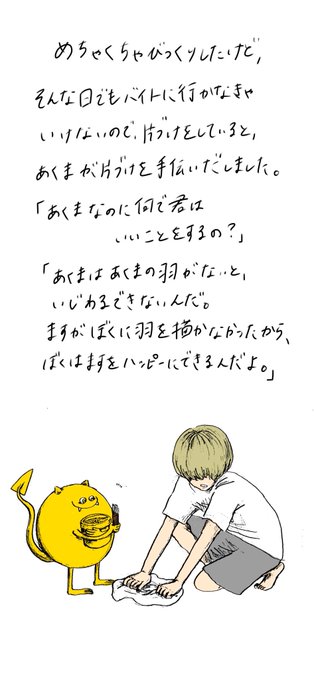 めちゃくちゃびっくりしたけど、
そんな日でもバイトに行かなきゃ
いけないので、片づけをしていると、
あくまが片づけを手伝いだしました。
「あくまなのに何で君は
いいことをするの?」
「あくまはあくまの羽がないと、
いじわるできないんだ。
ますがぼくに羽を描かなかったから、
ぼくはますをハッピーにできるんだよ。」